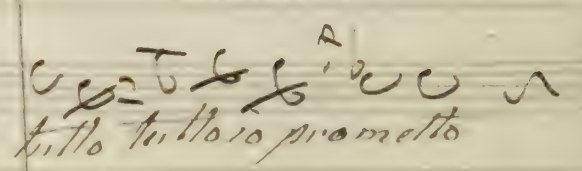 tutto tutto io prometto